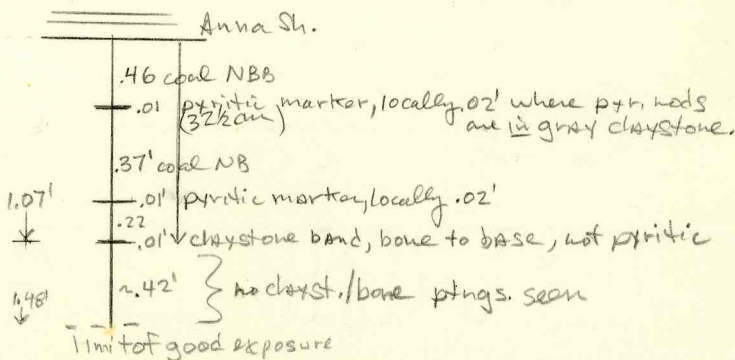 Anna Sh.
.46 coal NBB
.01 pyritic marker, locally .02' where pyr. nods
(32½cm) are in gray claystone.
.37' coal NB
1.07' .01' pyritic marker, locally .02'
.22
.01' claystone band, bone to base, not pyritic
1.48' ~.42' } no clayst./bone ptngs. seen
limit of good exposure